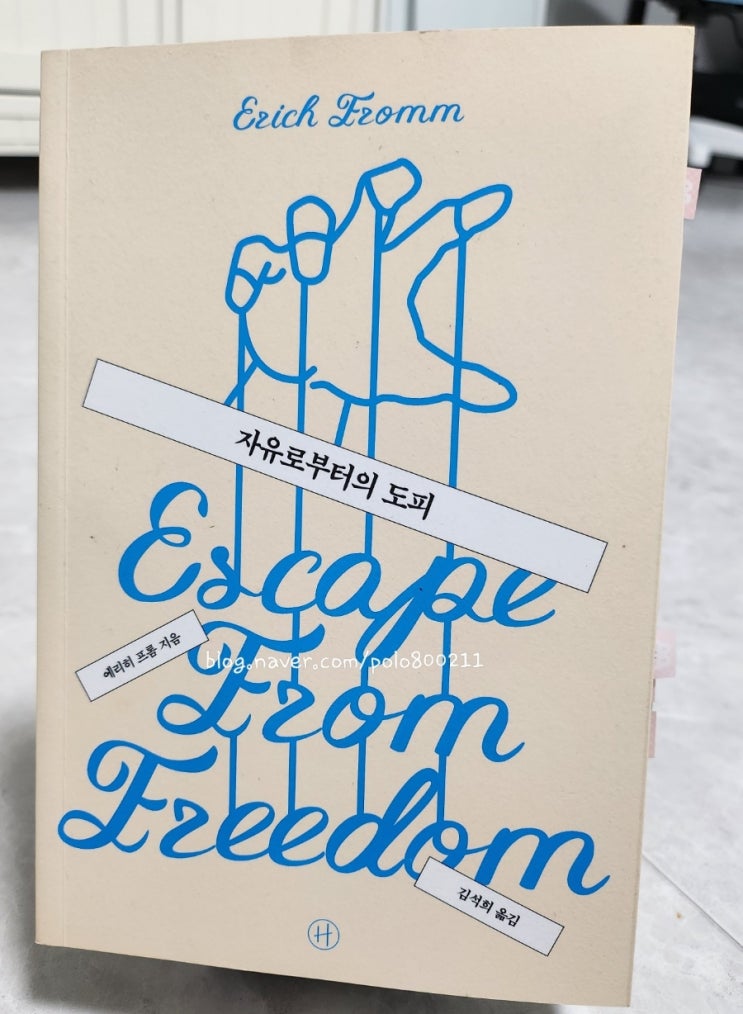 Erich Fromm
자유로부터의 도피
Escape
에리히 프롬 지음
From
blog.naver.com/polo800211
Freedom
김석희 옮김
H